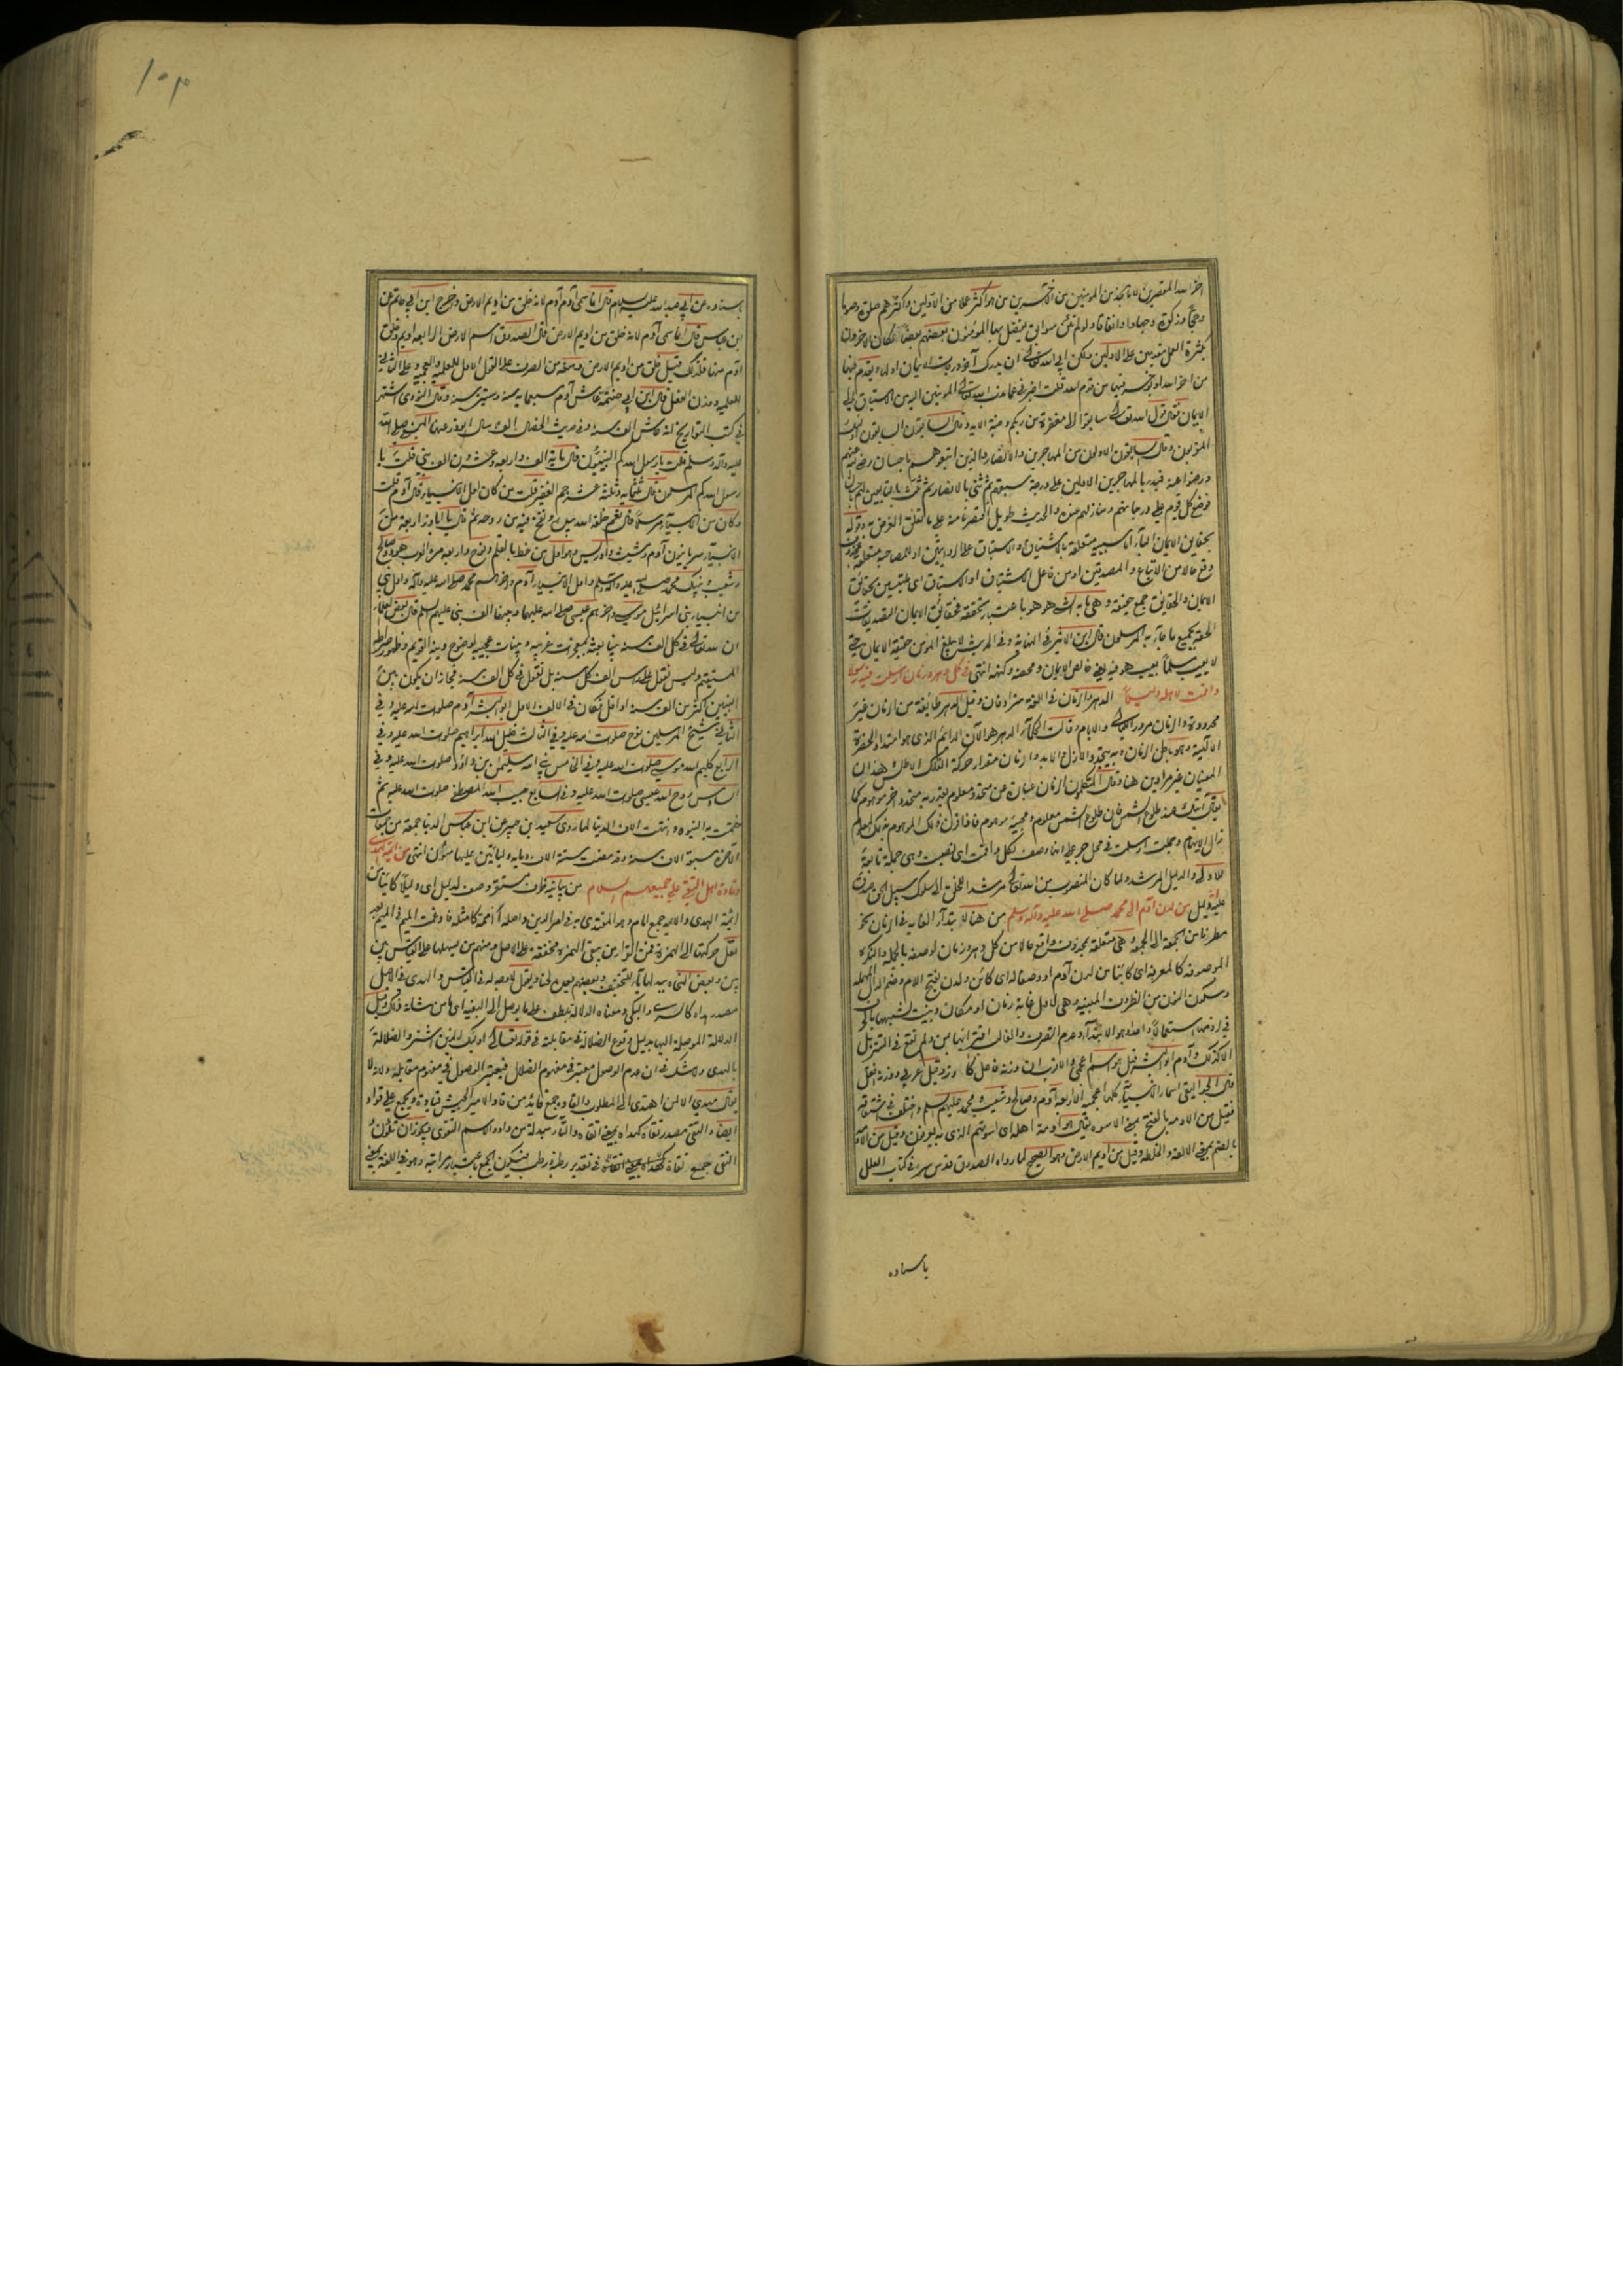 اخر الله المقصرين لانا نجد من المؤمنين من الآخرين من هو اكثر عملا من الاولين واكثرهم صلوة وصوما
وحجا وزكوة وجهادا وانفاقا ولو لم تكن سوابق يفضل بها المؤمنون بعضهم بعضا لكان الآخرون
بكثرة العمل مقدمين على الاولين ولكن ابى الله تعالى ان يدرك آخر درجات الايمان اولها ويقدم فيها
من اخر الله او يؤخر فيها من قدم الله قلت اخبرني عما ندب الله تعالى المؤمنين اليه من الاستباق الى
الايمان فقال قول الله تعالى سابقوا الى مغفرة من ربكم وجنة الآية وقال السابقون السابقون اولئك
المقربون وقال السابقون الاولون من المهاجرين والانصار والذين اتبعوهم باحسان رضي الله عنهم
ورضوا عنه فبدء بالمهاجرين الاولين على درجة سبقهم ثم ثنى بالانصار ثم ثلث بالتابعين لهم باحسان
فوضع كل قوم على درجاتهم ومنازلهم عنده والحديث طويل اقتصرنا منه على ما تعلق الغرض به وقوله
بحقايق الايمان الباء اما سببية متعلقة بالاشتياق او الاستباق على الروايتين او للمصاحبة متعلقة بمحذوف
وقع حالا من الاتباع والمصدقين او من فاعل الاشتياق او الاستباق اى ملتبسين بحقائق
الايمان والحقايق جمع حقيقة وهى ما به الشيء هو هو باعتبار تحققه فحقائق الايمان التصديقات
الحقة بجميع ما جاء به المرسلون قال ابن الاثير في النهاية وفي الحديث لا يبلغ المؤمن حقيقة الايمان حتى
لا يعيب مسلما بعيب هو فيه يعني خالص الايمان ومحضه وكنهه انتهى في كل دهر وزمان ارسلت فيه رسولا
واقمت لاهله دليلا الدهر والزمان في اللغة مترادفان وقيل الدهر طايفة من الزمان غير
محدودة والزمان مرور الليالي والايام وقالت الحكماء الدهر هو الآن الدائم الذى هو امتداد الحضرة
الالهية وهو باطن الزمان وبه يتحد الازل والابد والزمان مقدار حركة الفلك الاطلس وهذان
المعنيان غير مرادين هنا وقال المتكلمون الزمان عبارة عن متجدد معلوم يقدر به متجدد اخر موهوم كما
يقال آتيك عند طلوع الشمس فان طلوع الشمس معلوم ومجيئه موهوم فاذا قرن ذلك الموهوم بذلك المعلوم
زال الايهام وجملة ارسلت في محل جر على انها وصف لكل واقمت اى نصبت وهى جملة تابعة
للاولى والدليل المرشد ولما كان المنصوب من الله تعالى مرشدا للخلق الى سلوك سبيل الحق صدق
عليه دليل من لدن آدم الى محمد صلى الله عليه وآله وسلم من هنا لابتداء الغاية في الزمان نحو
مطرنا من الجمعة الى الجمعة هى متعلقة بمحذوف واقع حالا من كل دهر وزمان لوصفه بالجملة والنكرة
الموصوفة كالمعرفة اى كائنا من لدن آدم او وصفا له اى كائن ولدن بفتح اللام وضم الدال المهملة
وسكون النون من الظروف المبنية وهى لاول غاية زمان او مكان وبنيت لشبهها بالحرف
في لزومها استعمالا واحدا وهو الابتداء وعدم التصرف والغالب اقترانها بمن ولم تقع في التنزيل
الا كذلك وآدم ابو البشر قيل هو اسم اعجمي والاقرب ان وزنه فاعل كآزر وقيل عربي ووزنه افعل
قال الجواليقي اسماء الانبياء كلها اعجمية الا اربعة آدم وصالح وشعيب ومحمد عليهم السلم واختلف في اشتقاقه
فقيل من الادمة بالفتح بمعنى الاسوة يقال هو ادمة اهله اى اسوتهم الذى به يعرفون وقيل من الادمة
بالضم بمعنى الالفة والخلطة وقيل من اديم الارض وهو الصحيح لما رواه الصدوق قدس سره في كتاب العلل
باسناده
١٥٣
باسناده عن ابي عبد الله عليه السلام قال انما سمى آدم آدم لانه خلق من اديم الارض واخرج ابن ابي حاتم عن
ابن عباس قال انما سمى آدم لانه خلق من اديم الارض قال الصدوق اسم الارض الرابعة اديم وخلق
آدم منها فلذلك قيل خلق من اديم الارض ومنعه من الصرف على القول الاول للعلمية والعجمة وعلى الثاني
للعلمية ووزن الفعل قال ابن ابي خيثمة عاش آدم سبعمائة سنة وستين سنة وقال النووى اشتهر
في كتب التواريخ انه عاش الف سنة وفي حديث الخصال انه سال ابوذر عنها النبي صلى الله
عليه وآله وسلم قلت يا رسول الله كم النبيون قال مائة الف واربعة وعشرون الف نبي قلت يا
رسول الله كم المرسلون قال ثلثمائة وثلثة عشر جم الغفير قلت من كان اول الانبياء قال آدم قلت
وكان من الانبياء مرسلا قال نعم خلقه الله بيده ونفخ فيه من روحه ثم قال يا اباذر اربعة من
الانبياء سريانيون آدم وشيث وادريس وهو اول من خط بالقلم ونوح واربعة من العرب هود وصالح
وشعيب ونبيك محمد صلى الله عليه وآله وسلم واول الانبياء آدم وآخرهم محمد صلى الله عليه وآله واول نبي
من انبياء بني اسرائيل موسى وآخرهم عيسى صلى الله عليهما وبينهما الف نبي عليهم السلم قال بعض العلماء
ان لله تعالى في كل الف سنة نبيا بعثه بمعجزات غريبة وبينات عجيبة لوضوح دينه القويم وظهور صراطه
المستقيم وليس نقول على رأس الف كل سنة بل نقول في كل الف سنة فجاز ان يكون بين
النبيين اكثر من الف سنة او اقل فكان في الالف الاول ابو البشر آدم صلوات الله عليه وفي
الثاني شيخ المرسلين نوح صلوات الله عليه وفي الثالث خليل الله ابراهيم صلوات الله عليه وفي
الرابع كليم الله موسى صلوات الله عليه وفي الخامس نبي الله سليمان بن داود صلوات الله عليه وفي
السادس روح الله عيسى صلوات الله عليه وفي السابع حبيب الله المصطفى صلوات الله عليه ثم
ختمت به النبوة وانتهت الاف الدنيا لما روى سعيد ابن جبير عن ابن عباس الدنيا جمعة من جمعات
الآخرة سبعة الاف سنة وقد مضت ستة الاف ومائة وليأتين عليها مئون انتهى من ائمة الهدى
وقادة اهل التقى على جميعهم السلام من بيانية ظرف مستقر وصف لدليل اى دليلا كائنا من
ائمة الهدى والائمة جمع امام وهو المقتدى به في امر الدين واصله أأممة كامثلة فادغمت الميم في الميم بعد
نقل حركتها الى الهمزة فمن القراء من يبقى الهمزة محققة على الاصل ومنهم من يسهلها على القياس بين
بين وبعض النحاة يبدلها ياء للتخفيف وبعضهم يعده لحنا ويقول لا وجه له في القياس والهدى في الاصل
مصدر هداه كالسرى والبكى ومعناه الدلالة بلطف على ما يوصل الى البغية اى ما من شانه ذلك وقيل
الدلالة الموصلة اليها بدليل وقوع الضلالة في مقابلته في قوله تعالى اولئك الذين اشتروا الضلالة
بالهدى ولا شك في ان عدم الوصول معتبر في مفهوم الضلال فيعتبر الوصول في مفهوم مقابله ولانه لا
يقال مهدي الا لمن اهتدى الى المطلوب والقادة جمع قائد من قاد الامير الجيش قيادة ويجمع على قواد
ايضا والتقى مصدر تقاه كهداه بمعنى اتقاه والتاء مبدلة من واو والاسم التقوى ويجوز ان تكون
التقى جمع تقاة في تقدير رطبة ورطب فيكون الجمع باعتبار مراتبه وهو في اللغة بمعنى